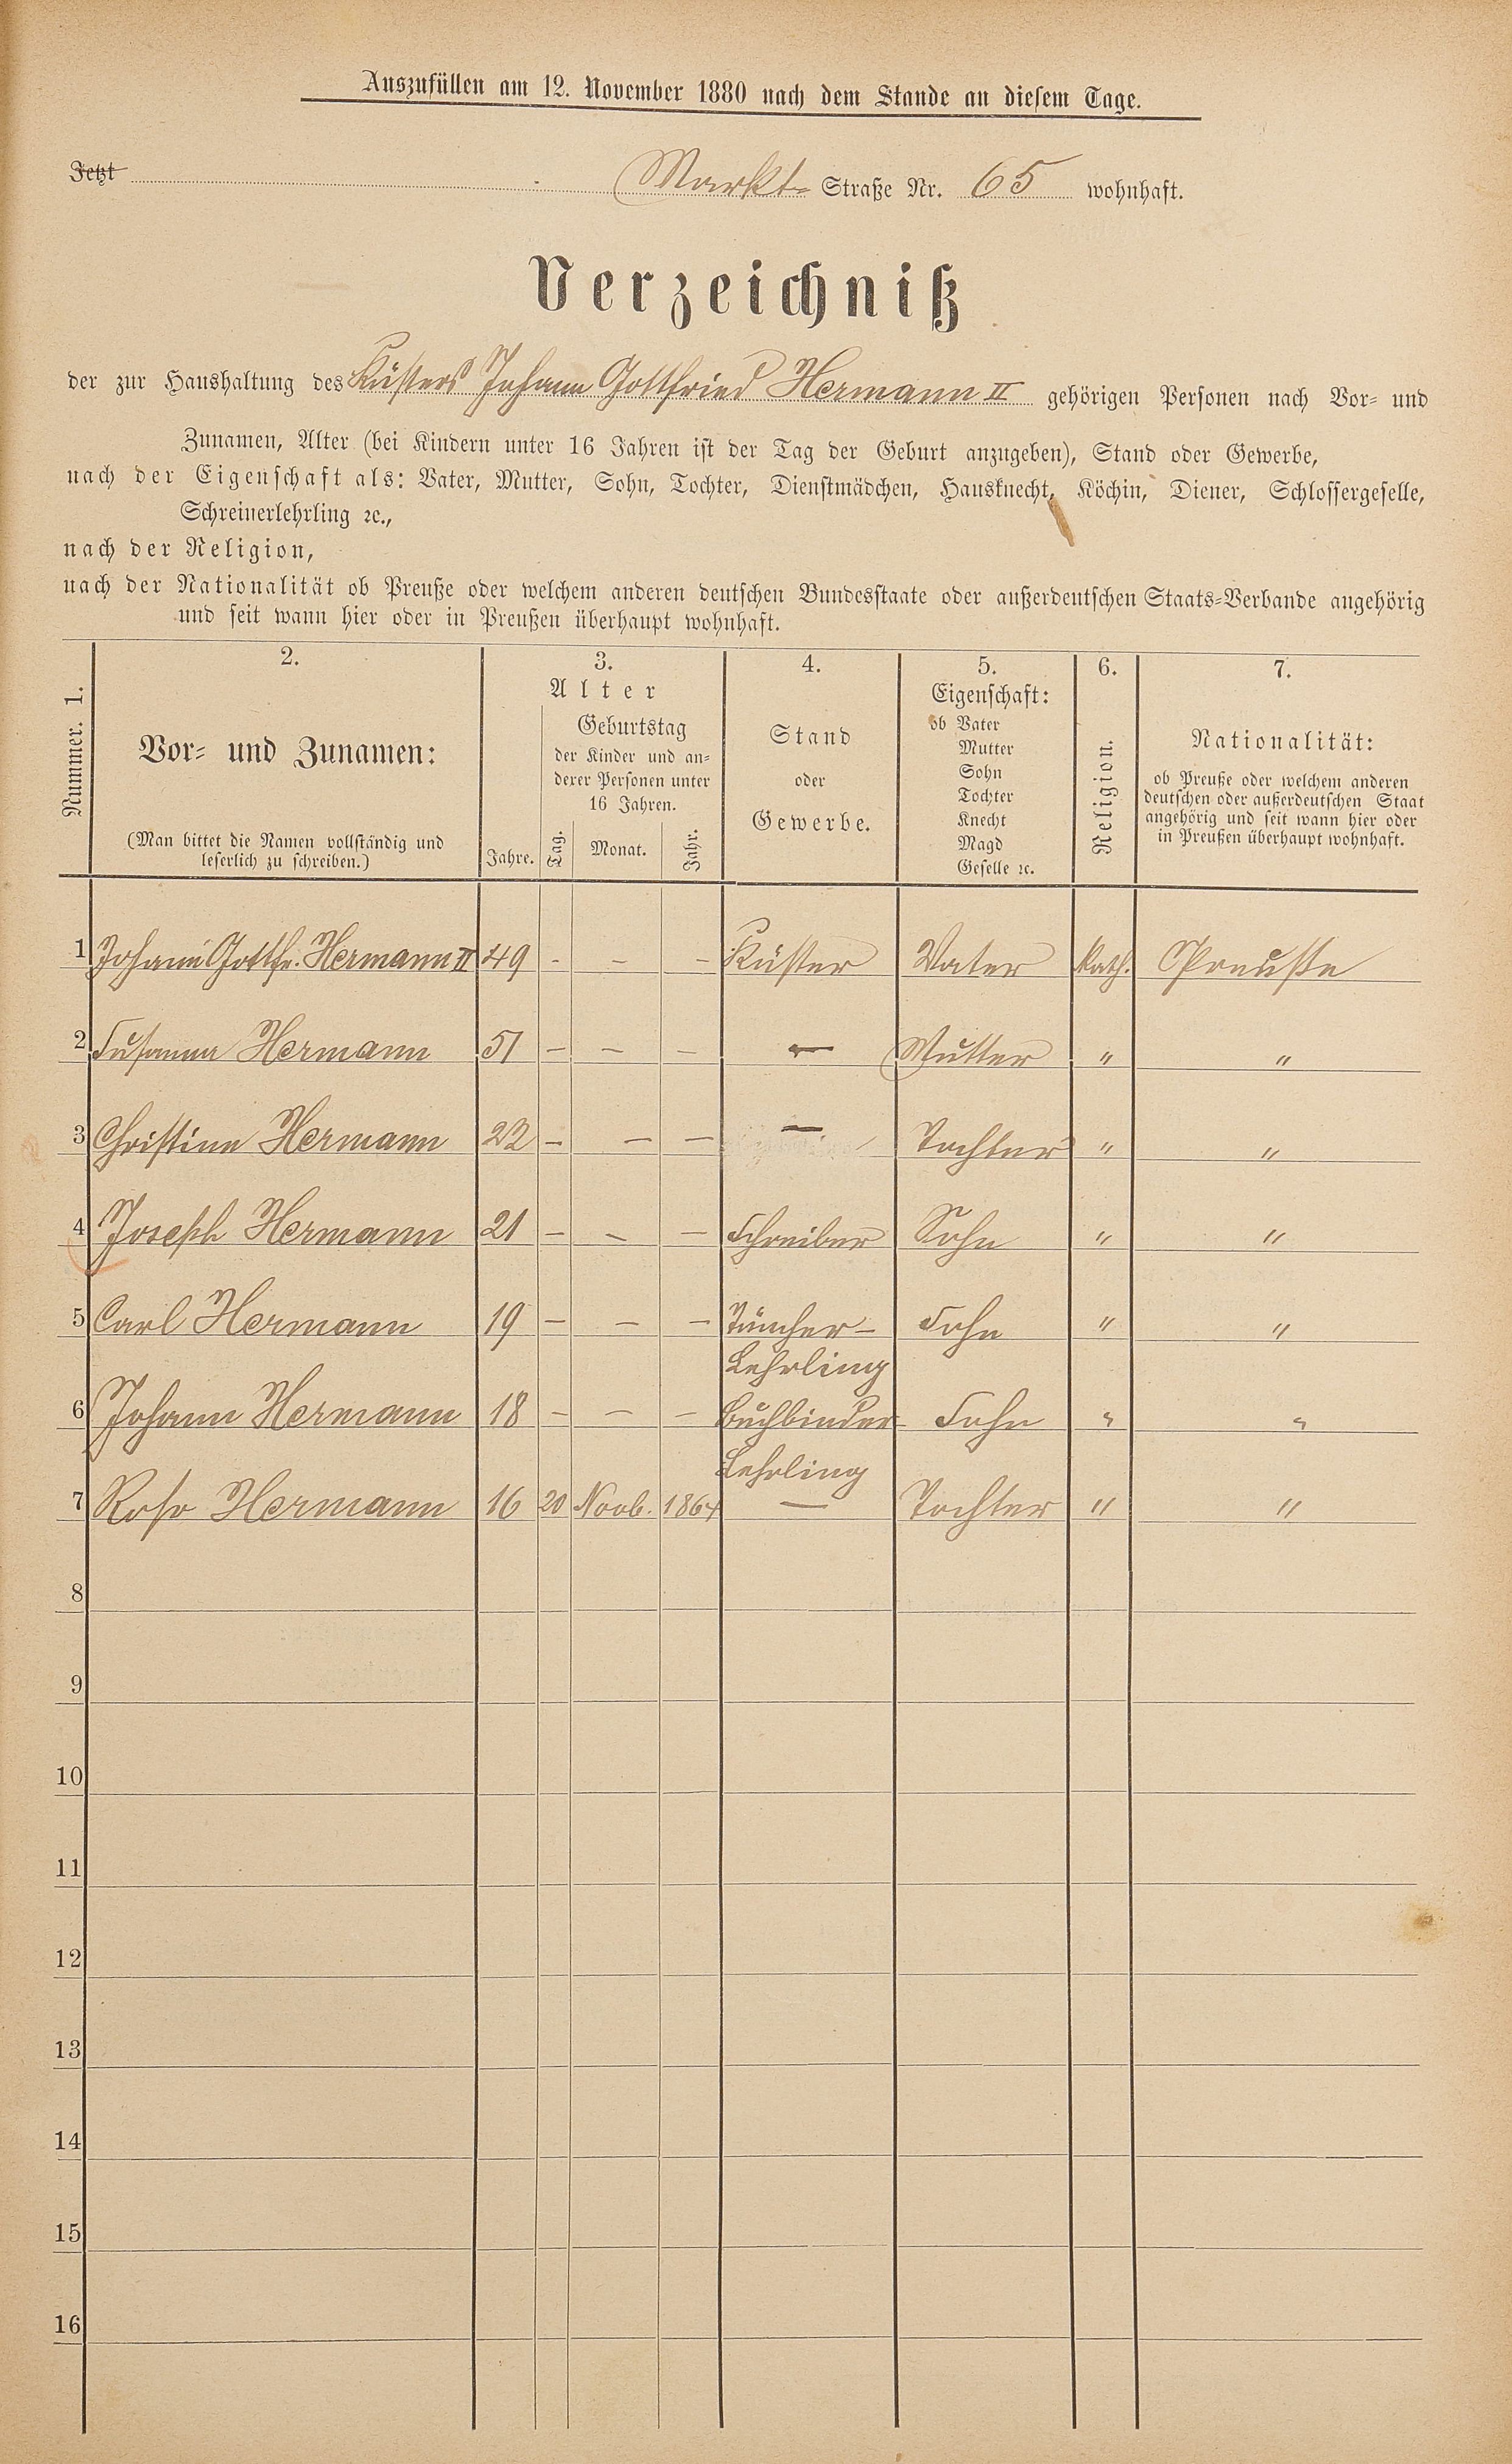 Auszufüllen am 12. November 1880 nach dem Stande an diesem Tage.
Jetzt Markt- Straße Nr. 65 wohnhaft.
Verzeichniß
der zur Haushaltung des Küsters Johann Gottfried Hermann II gehörigen Personen nach Vor- und
Zunamen, Alter (bei Kindern unter 16 Jahren ist der Tag der Geburt anzugeben), Stand oder Gewerbe,
nach der Eigenschaft als: Vater, Mutter, Sohn, Tochter, Dienstmädchen, Hausknecht, Köchin, Diener, Schlossergeselle,
Schreinerlehrling ꝛc.,
nach der Religion,
nach der Nationalität ob Preuße oder welchem anderen deutschen Bundesstaate oder außerdeutschen Staats-Verbande angehörig
und seit wann hier oder in Preußen überhaupt wohnhaft.
Nummer. 1.
2.
Vor- und Zunamen:
(Man bittet die Namen vollständig und
leserlich zu schreiben.)
3.
Alter
Jahre.
Geburtstag
der Kinder und an-
derer Personen unter
16 Jahren.
Tag. Monat. Jahr.
4.
Stand
oder
Gewerbe.
5.
Eigenschaft:
ob Vater
Mutter
Sohn
Tochter
Knecht
Magd
Geselle ꝛc.
6.
Religion.
7.
Nationalität:
ob Preuße oder welchem anderen
deutschen oder außerdeutschen Staat
angehörig und seit wann hier oder
in Preußen überhaupt wohnhaft.
1 Johann Gottfr. Hermann II 49 - - - Küster Vater Kath. Preuße
2 Susanna Hermann 51 - - - - Mutter " "
3 Christine Hermann 22 - - - - Tochter " "
4 Joseph Hermann 21 - - - Schreiber Sohn " "
5 Carl Hermann 19 - - - Tüncher- Sohn " "
Lehrling
6 Johann Hermann 18 - - - Buchbinder Sohn " "
Lehrling
7 Rosa Hermann 16 20 Novb. 1864 - Tochter " "
8
9
10
11
12
13
14
15
16